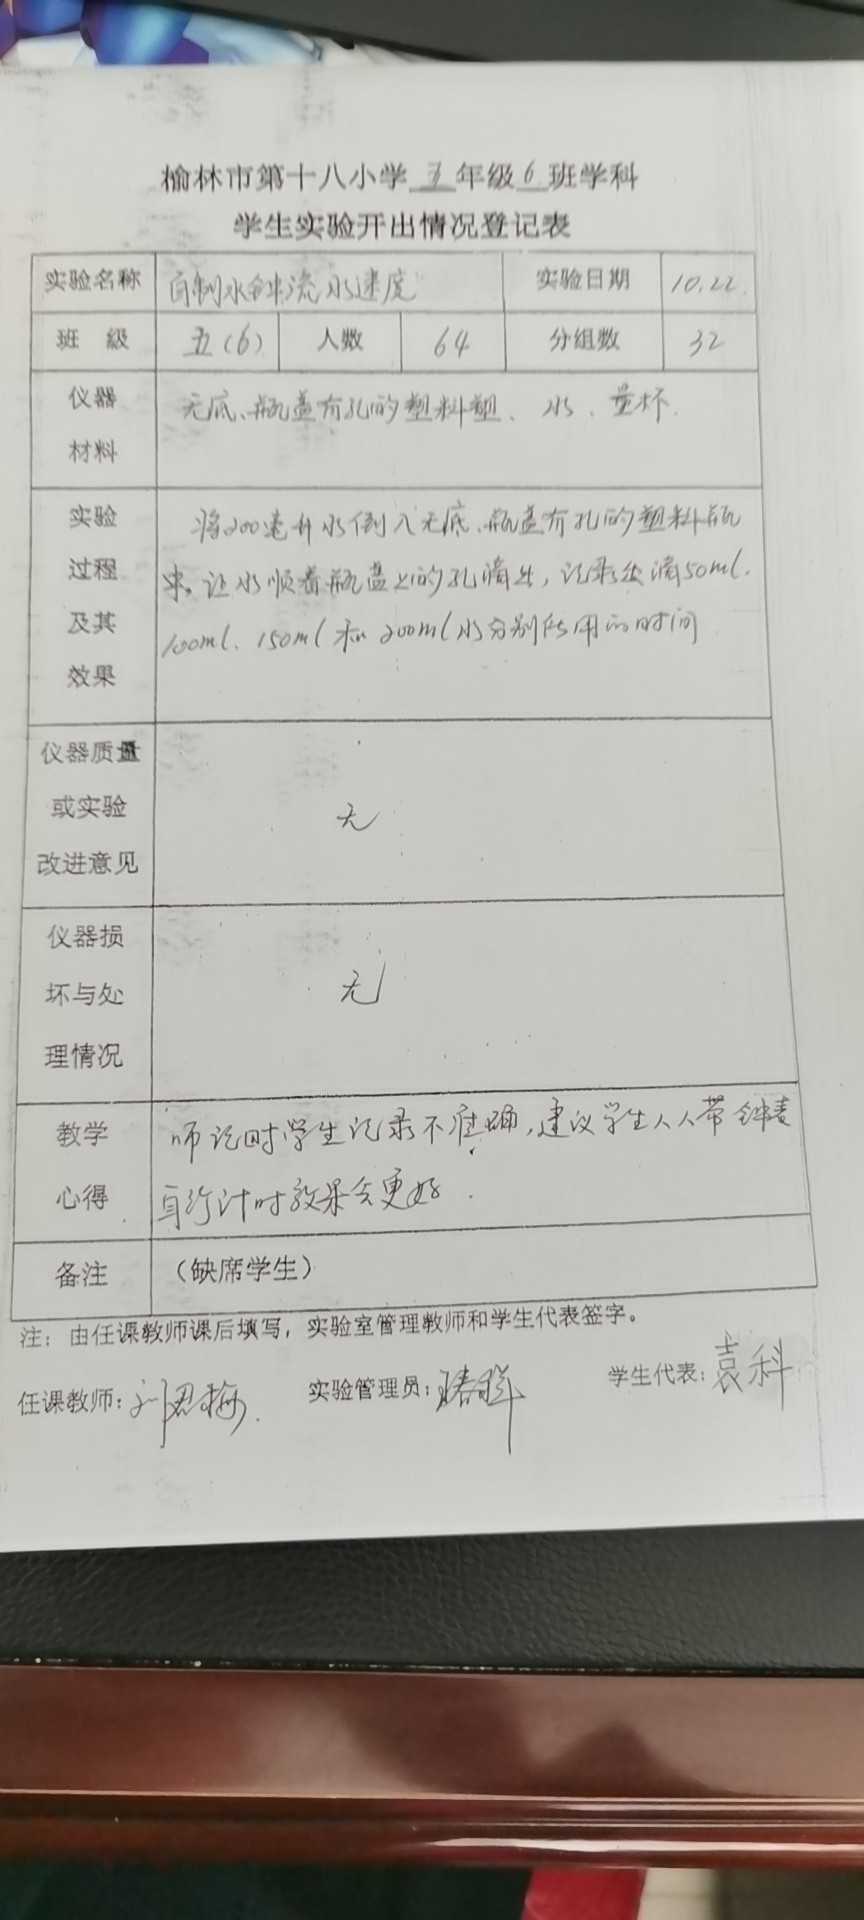 榆林市第十八小学 五 年级 6 班学科
学生实验开出情况登记表
实验名称 自制水钟流水速度 实验日期 10.22.
班 级 五(6) 人数 64 分组数 32
仪器 无底、瓶盖有孔的塑料塑、水、量杯.
材料
实验 将200毫升水倒入无底、瓶盖有孔的塑料瓶
过程 中。让水顺着瓶盖上的孔滴出,记录出滴50ml.
及其 100ml、150ml和200ml水分别所用的时间
效果
仪器质量
或实验 无
改进意见
仪器损
坏与处 无
理情况
教学 师记时学生记录不准确,建议学生人人带钟表
心得 自行计时效果会更好.
备注 (缺席学生)
注:由任课教师课后填写,实验室管理教师和学生代表签字。
任课教师: 刘 梅. 实验管理员: 学生代表:袁科